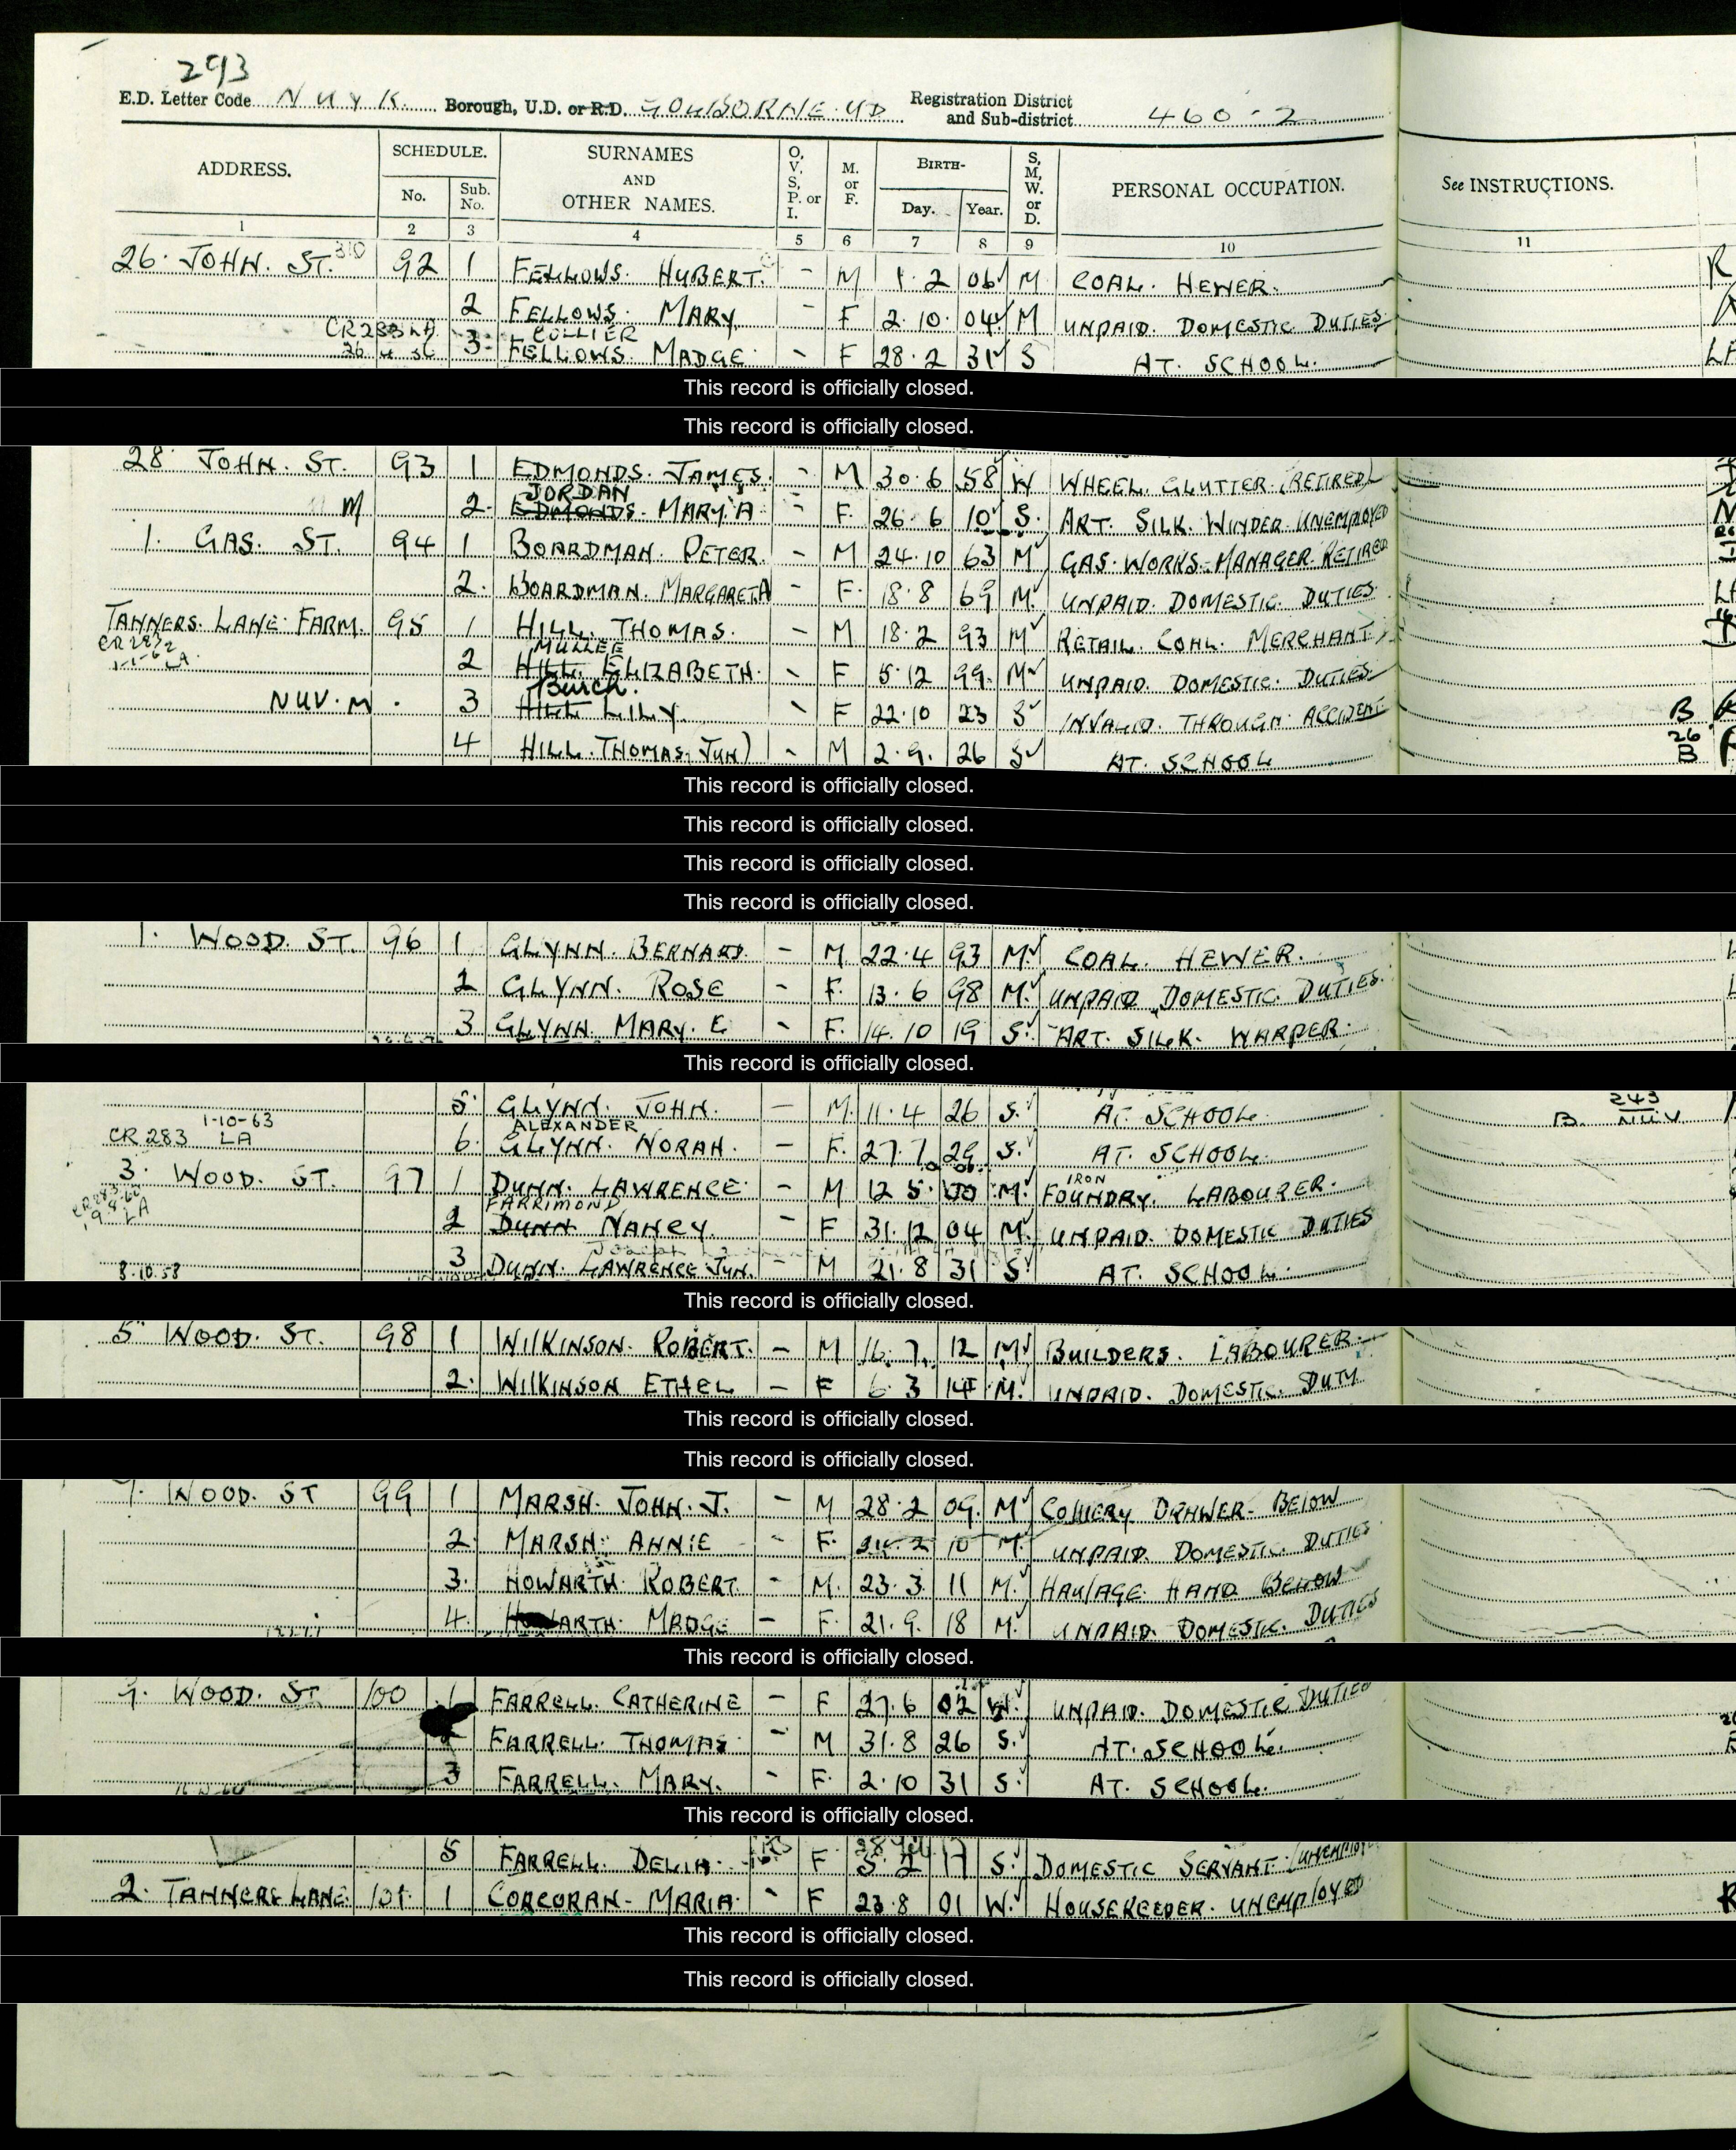 293
E.D. Letter Code NUYK Borough, U.D. or R.D. GOLBORNE UD Registration District and Sub-district 460-2
ADDRESS. SCHEDULE. No. Sub. No. SURNAMES AND OTHER NAMES. O, V, S, P. or I. M. or F. BIRTH- Day. Year. S, M, W. or D. PERSONAL OCCUPATION. See INSTRUCTIONS.
1 2 3 4 5 6 7 8 9 10 11
26. JOHN. ST. 92 1 FELLOWS. HUBERT. - M 1. 2 06 M COAL. HEWER.
2 FELLOWS. MARY. - F 2. 10. 04 M UNPAID. DOMESTIC DUTIES
CR 283 LA COLLIER
3 FELLOWS. MADGE - F 28. 2 31 S AT. SCHOOL.
This record is officially closed.
This record is officially closed.
28 JOHN. ST. 93 1 EDMONDS. JAMES. - M 30. 6 58 W WHEEL. GLUTTER (RETIRED)
JORDAN
M 2. EDMONDS. MARY. A - F. 26. 6 10 S. ART. SILK. WINDER. UNEMPLOYED
1. GAS. ST. 94 1 BOARDMAN. PETER. - M 24. 10 63 M GAS. WORKS. MANAGER. RETIRED
2. BOARDMAN. MARGARET.A - F. 18. 8 69 M. UNPAID. DOMESTIC. DUTIES.
TANNERS. LANE. FARM. 95 1 HILL. THOMAS. - M 18. 2 93 M RETAIL. COAL. MERCHANT.
CR 283 MULLEE
LA 2 HILL. ELIZABETH. - F 5. 12 99. M UNPAID. DOMESTIC. DUTIES
Burch.
NUV. M. 3 HILL LILY. - F 22. 10 23 S INVALID. THROUGH. ACCIDENT B
4 HILL. THOMAS. JUN) - M 2. 9. 26 S AT. SCHOOL 26 B
This record is officially closed.
This record is officially closed.
This record is officially closed.
This record is officially closed.
1. WOOD. ST. 96 1 GLYNN. BERNARD. - M 22. 4 93 M. COAL. HEWER.
2 GLYNN. ROSE - F. 13. 6 98 M. UNPAID DOMESTIC. DUTIES.
3 GLYNN. MARY. E - F. 14. 10 19 S. ART. SILK. WARPER.
This record is officially closed.
5. GLYNN. JOHN. - M. 11. 4 26 S. AT. SCHOOL. B. 243 NUV
1-10-63 ALEXANDER
CR 283 LA 6. GLYNN. NORAH. - F. 27. 7. 29 S. AT. SCHOOL.
3. WOOD. ST. 97 1 DUNN. LAWRENCE. - M 12 5. 00 M. IRON FOUNDRY. LABOURER.
FARRIMOND
2 DUNN NANCY. - F 31. 12 04 M. UNPAID. DOMESTIC DUTIES
Joseph
8.10.58 3 DUNN. LAWRENCE JUN. - M 21. 8 31 S AT. SCHOOL.
This record is officially closed.
5 WOOD. ST. 98 1 WILKINSON. ROBERT. - M 16. 7. 12 M BUILDERS. LABOURER.
2. WILKINSON ETHEL - F 6. 3 14 M. UNPAID. DOMESTIC. DUTY
This record is officially closed.
This record is officially closed.
7. WOOD. ST 99 1 MARSH. JOHN. J. - M 28. 2 09. M COLLIERY DRAWER- BELOW
2. MARSH. ANNIE - F. 10 M. UNPAID. DOMESTIC. DUTIES
3. HOWARTH. ROBERT - M. 23. 3 11 M. HAULAGE. HAND BELOW
4. HOWARTH. MADGE - F. 21. 9. 18 M. UNPAID. DOMESTIC. DUTIES
This record is officially closed.
9. WOOD. ST 100 1 FARRELL. CATHERINE - F 27. 6 02 W. UNPAID. DOMESTIC DUTIES
2 FARRELL. THOMAS - M 31. 8 26 S. AT. SCHOOL.
3 FARRELL. MARY. - F. 2. 10 31 S. AT. SCHOOL.
This record is officially closed.
5 FARRELL. DELIA. F 5. 2 17 S. DOMESTIC SERVANT. (UNEMPLOY
2. TANNERS LANE. 101. 1 CORCORAN- MARIA - F 23. 8 01 W. HOUSEKEEPER. UNEMPLOYED
This record is officially closed.
This record is officially closed.